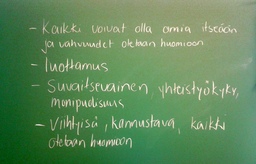 - Kaikki voivat olla omia itseään
ja vahvuudet otetaan huomioon
- luottamus
- Suvaitsevainen, yhteistyökyky,
monipuolisuus
- Viihtyisä, kannustava, kaikki
otetaan huomioon